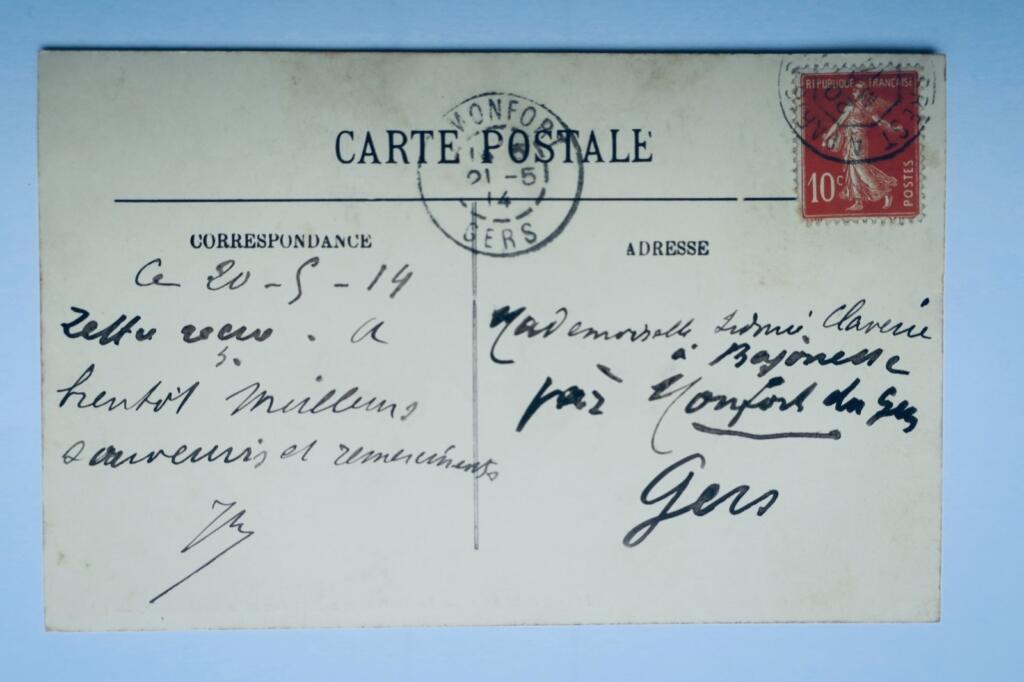 CARTE POSTALE
MONFORT
21 -5
14
GERS
REPUBLIQUE FRANÇAISE
10c
POSTES
CORRESPONDANCE
Ce 20 - 5 - 14
Lettre recue. A
bientôt Meilleurs
souvenirs et remerciements
ADRESSE
Mademoiselle Claverie
à Bajonnette
par Monfort du Gers
Gers